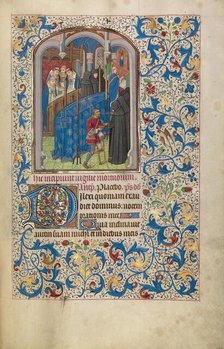 hic incipiunt vigilie mortuorum
Placebo. ps̄
Dilexi quoniam exau
diet dominus: vocem
orationis mee
Quia inclinauit
aurem suam michi: et in diebus meis